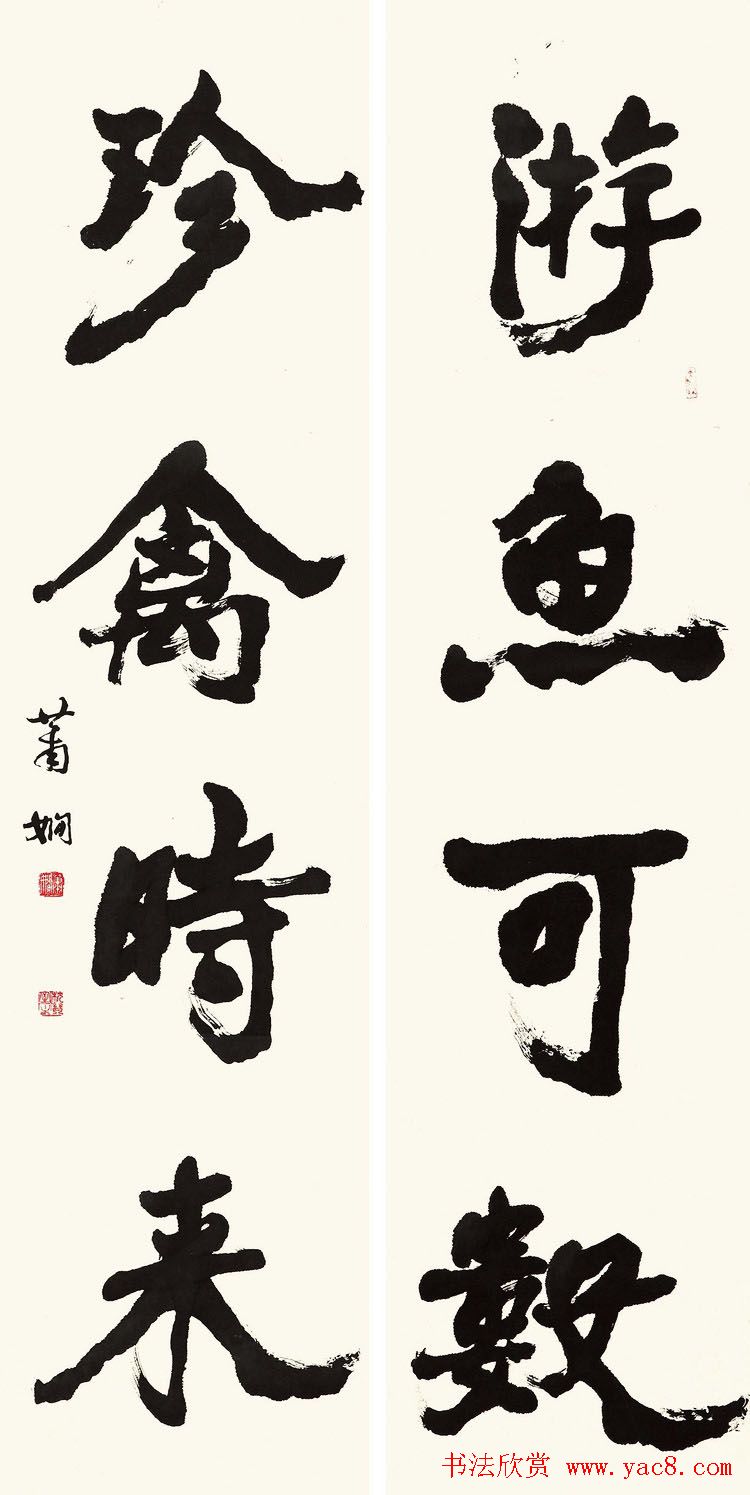 游魚可數
珍禽時来
蕭嫻
书法欣赏 www.yac8.com